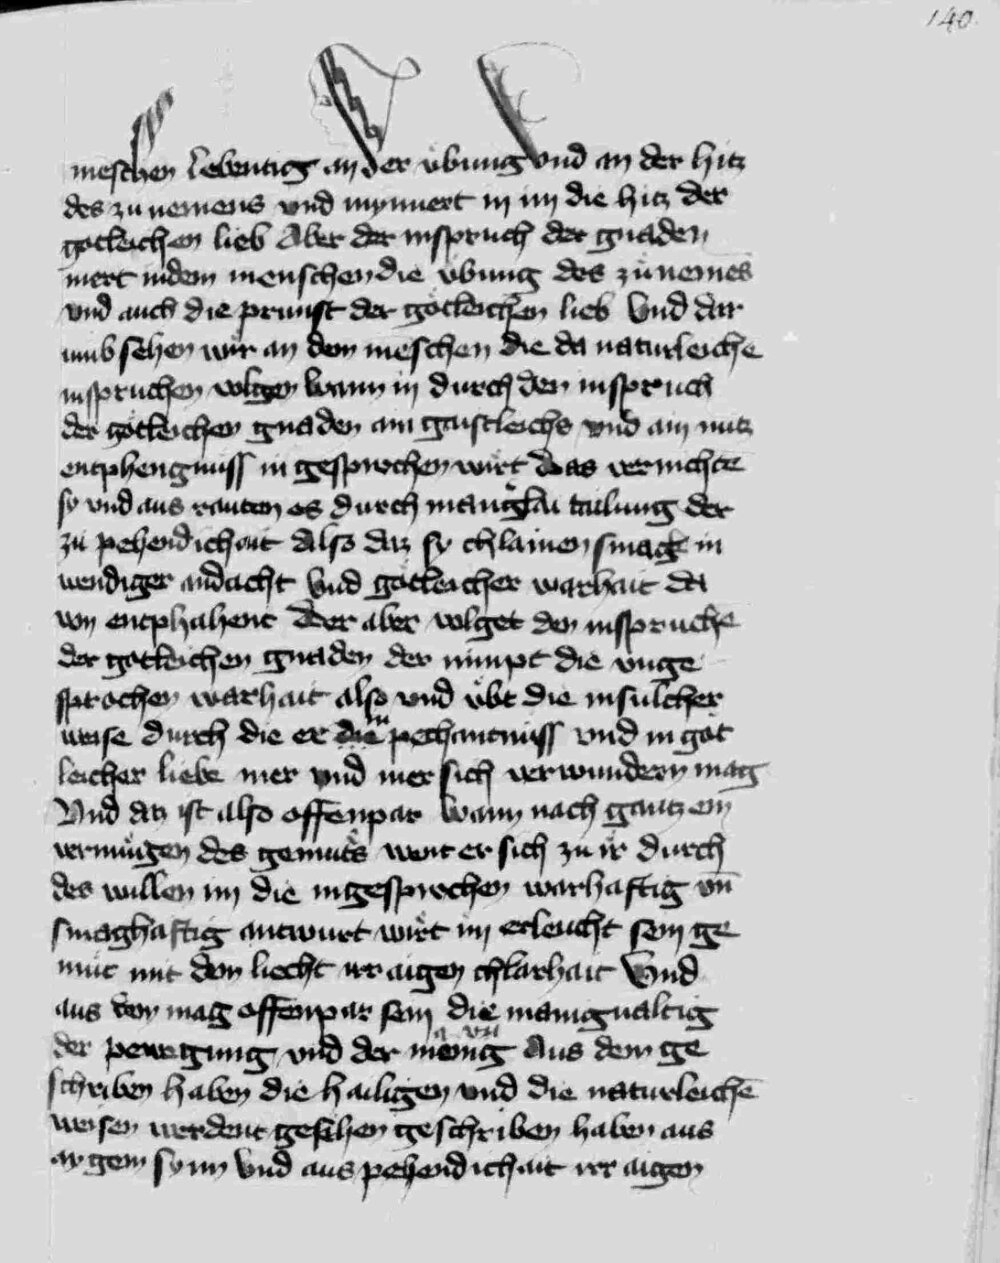 140
meschen lebentig an der übung vnd an der hitz
des zu nemens vnd mynnert in im die hitz der
gotleichen lieb Aber der inspruch der gnaden
mert in dem menschen die übung des zů nemēs
vnd auch die prunst der götleichen lieb Vnd dar
umb sehen wir an den meschen die da naturleiche
inspruchen volgen wann in durch den inspruch
der götleichen gnaden ain gaistleichs vnd ain nutz
entphengnuss in gesprochen wirt das vernichtē
sy vnd aus rauten es durch manigǩlai tailung der
zu pehendichait Also daz sy chlainen smagk in
wendiger andacht Vnd götleicher warhait da
von entphahent Wer aber volget den insprüche
der gotleichen gnaden der nimpt die vnge
sprochen warhait also vnd übt die in sülcher
weise durch die er in pechantnuss vnd in göt
leicher liebe mer vnd mer sich verwundern mag
Vnd daz ist also offenpar wann nach gantzem
vermügen des gemüts went er sich zu ir durch
des willen im die ingesprochen warhaftig vn̄
smaghaftig antwurt wirt im erleucht sein ge
müt mit dem liecht irr aigen chlarhait Vnd
aus dem mag offenpar sein die manigualtig
der pewegung vnd der mainung Aus dem ge
schriben haben die hailigen vnd die naturleichē
weisen werdent gesehen geschriben haben aus
aygem synn Vnd aus pehendichait irr aigen